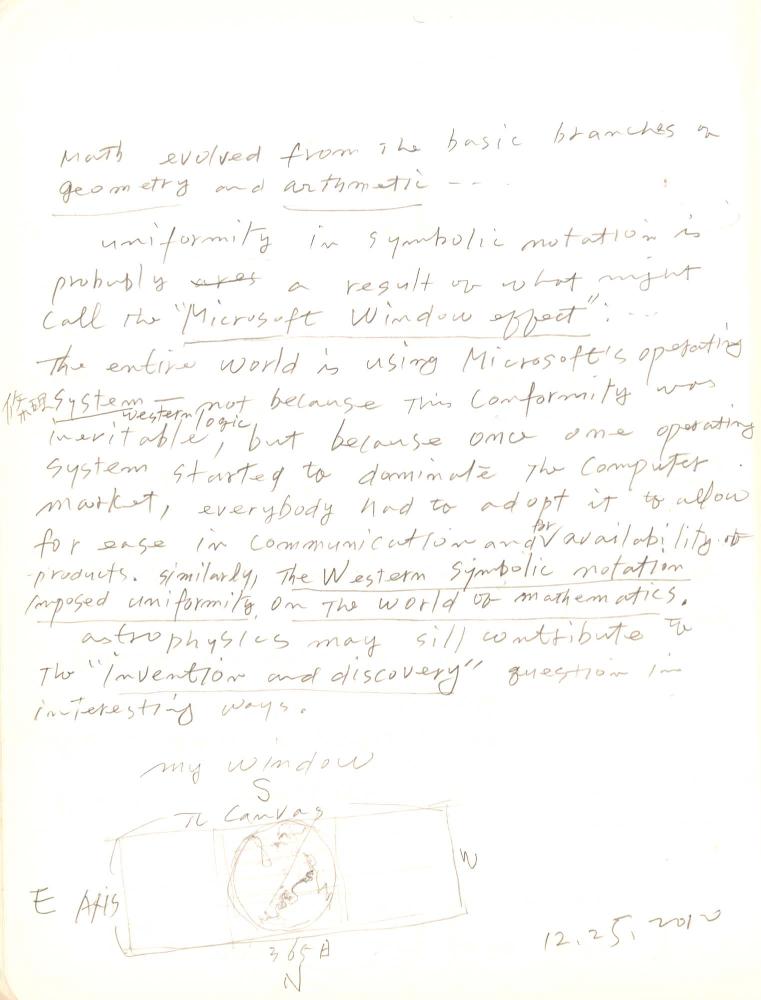 Math evolved from the basic branches of
geometry and arthmetic - - .
uniformity in symbolic notation is
probubly ares a result of what might
call the "Microsoft Window effect": ...
The entire world is using Microsoft's operating
修理 system — not because this conformity was
western logic
ineritable, but because once one operating
system started to dominate the computer
market, everybody had to adopt it to allow
for
for ease in communication and availability of
products. similarly, the Western symbolic notation
imposed uniformity on the world of mathematics.
astrophysics may sill contribute to
the "invention and discovery" question in
interesting ways.
my window
S
π Canvas
W
E Axis
365日
N
12.25, 2010